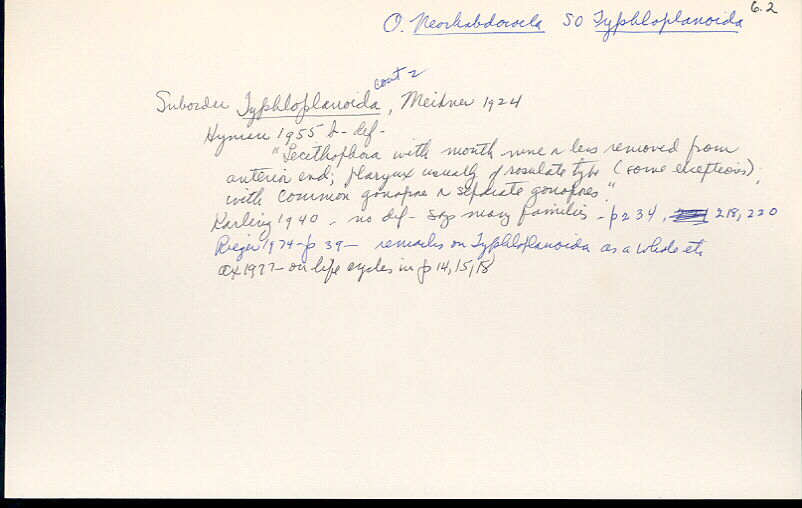 6.2
O. Neorhabdocoela SO Typhloplanoida
cont 2
Suborder Typhloplanoida, Meixner 1924
Hyman 1955 - def -
"Lecithophora with mouth more or less removed from
anterior end; pharynx usually of rosulate type (some exceptions);
with common gonopore or separate gonopores."
Karling 1940 - no def - says many families - p 234, 218, 220
Rieger 1974 - p 39 - remarks on Typhloplanoida as a whole etc
Ax 1977 - on life cycles in p 14, 15, 18